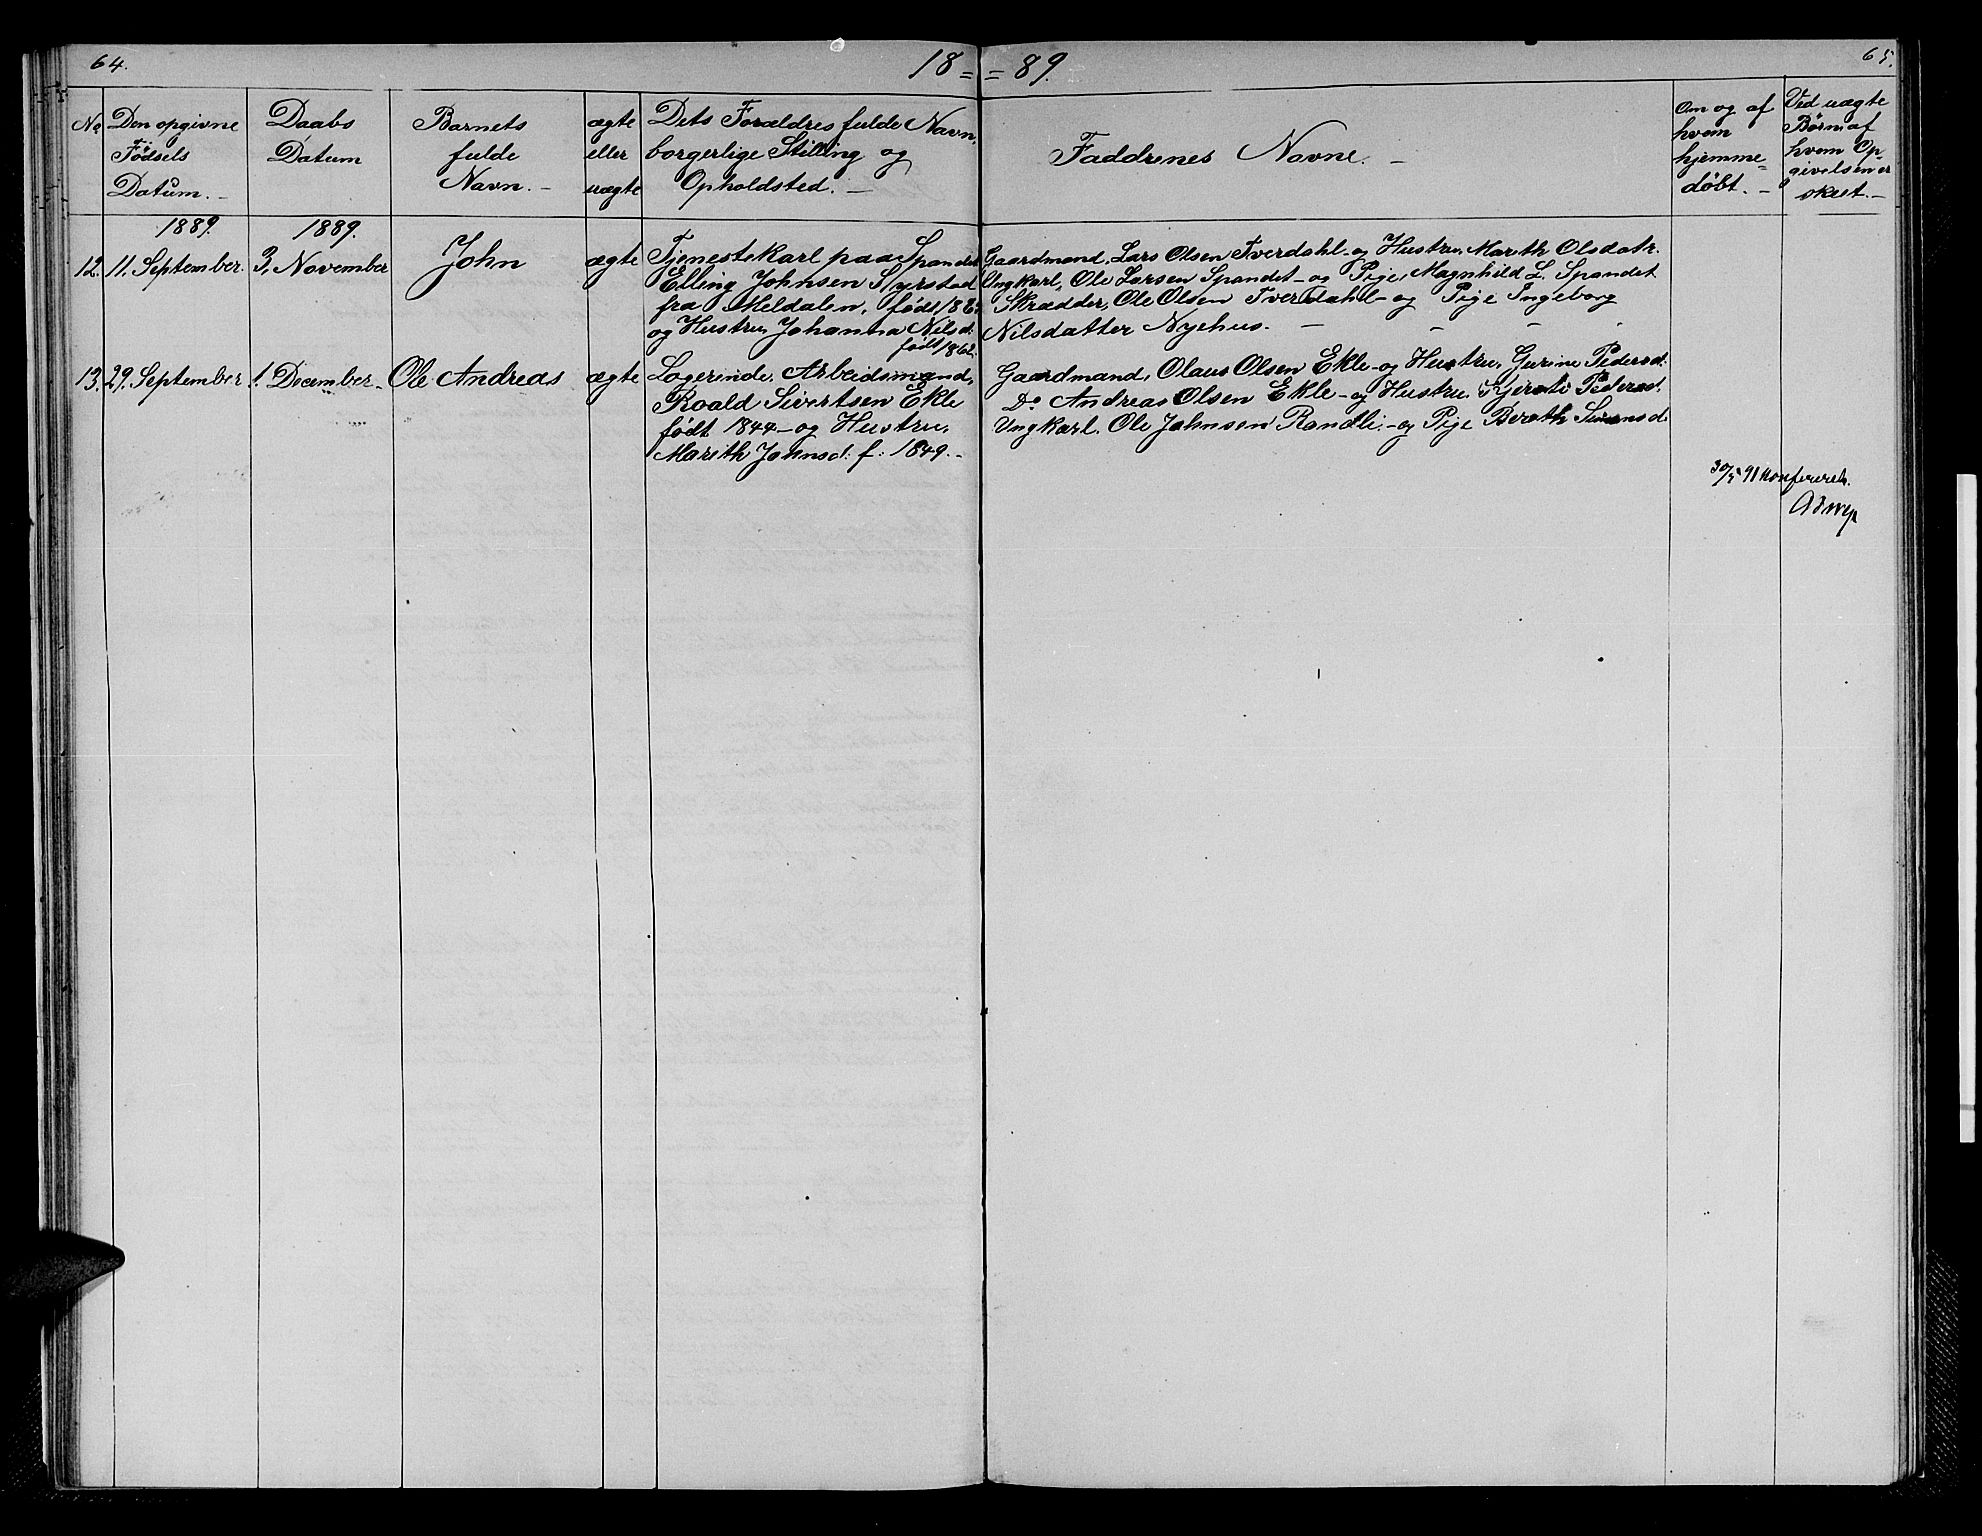 64.
18 = = 89.
65.
No
Den opgivne
Fødsels
Datum. -
Daabs
Datum
Barnets
fulde
Navn. -
ægte
eller
uægte
Dets Forældres fulde Navn,
borgerlige Stilling og
Opholdsted. -
Faddrenes Navne. -
Om og af
hvem
hjemme=
døbt. -
Ved uægte
Børn af
hvem Op-
givelsen er
skeet. -
1889.
1889.
12. 11. September.
3. November
John
ægte
Tjenestekarl paa Spandet
Elling Johnsen Syrstad
fra Meldalen, født
og Hustru, Johanna Nilsd.
født 1862.
Gaardmand, Lars Olsen Tverdahl og Hustru, Marith Olsdatr.
Ungkarl, Ole Larsen Spandet - og Pige, Magnhild L. Spandet
Skrædder, Ole Olsen Tverdahl - og Pige Ingeborg
Nilsdatter Nyehus. - - - .
13. 29. September
1. December.
Ole Andreas
ægte
Logerende, Arbeidsmand,
Roald Sivertsen Ekle
født 1844 - og Hustru,
Marith Johnsd: f: 1849. -
Gaardmand, Olaus Olsen Ekle - og Hustru, Gurine Pedersd.
Do Andreas Olsen Ekle - og Hustru, Kjersti Pedersd.
Ungkarl. Ole Johnsen Randli - og Pige Berath
30/5 91 Konfereret.